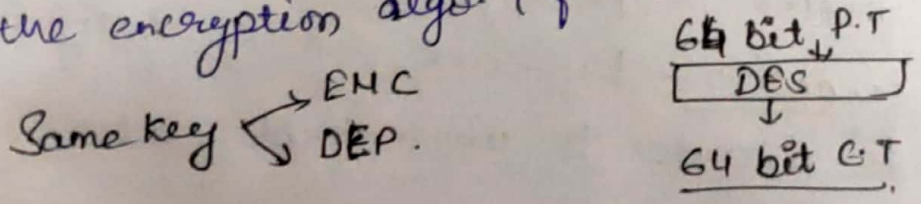 the encryption algo
Same key ENC
DEP.
64 bit P.T
DES
64 bit C.T